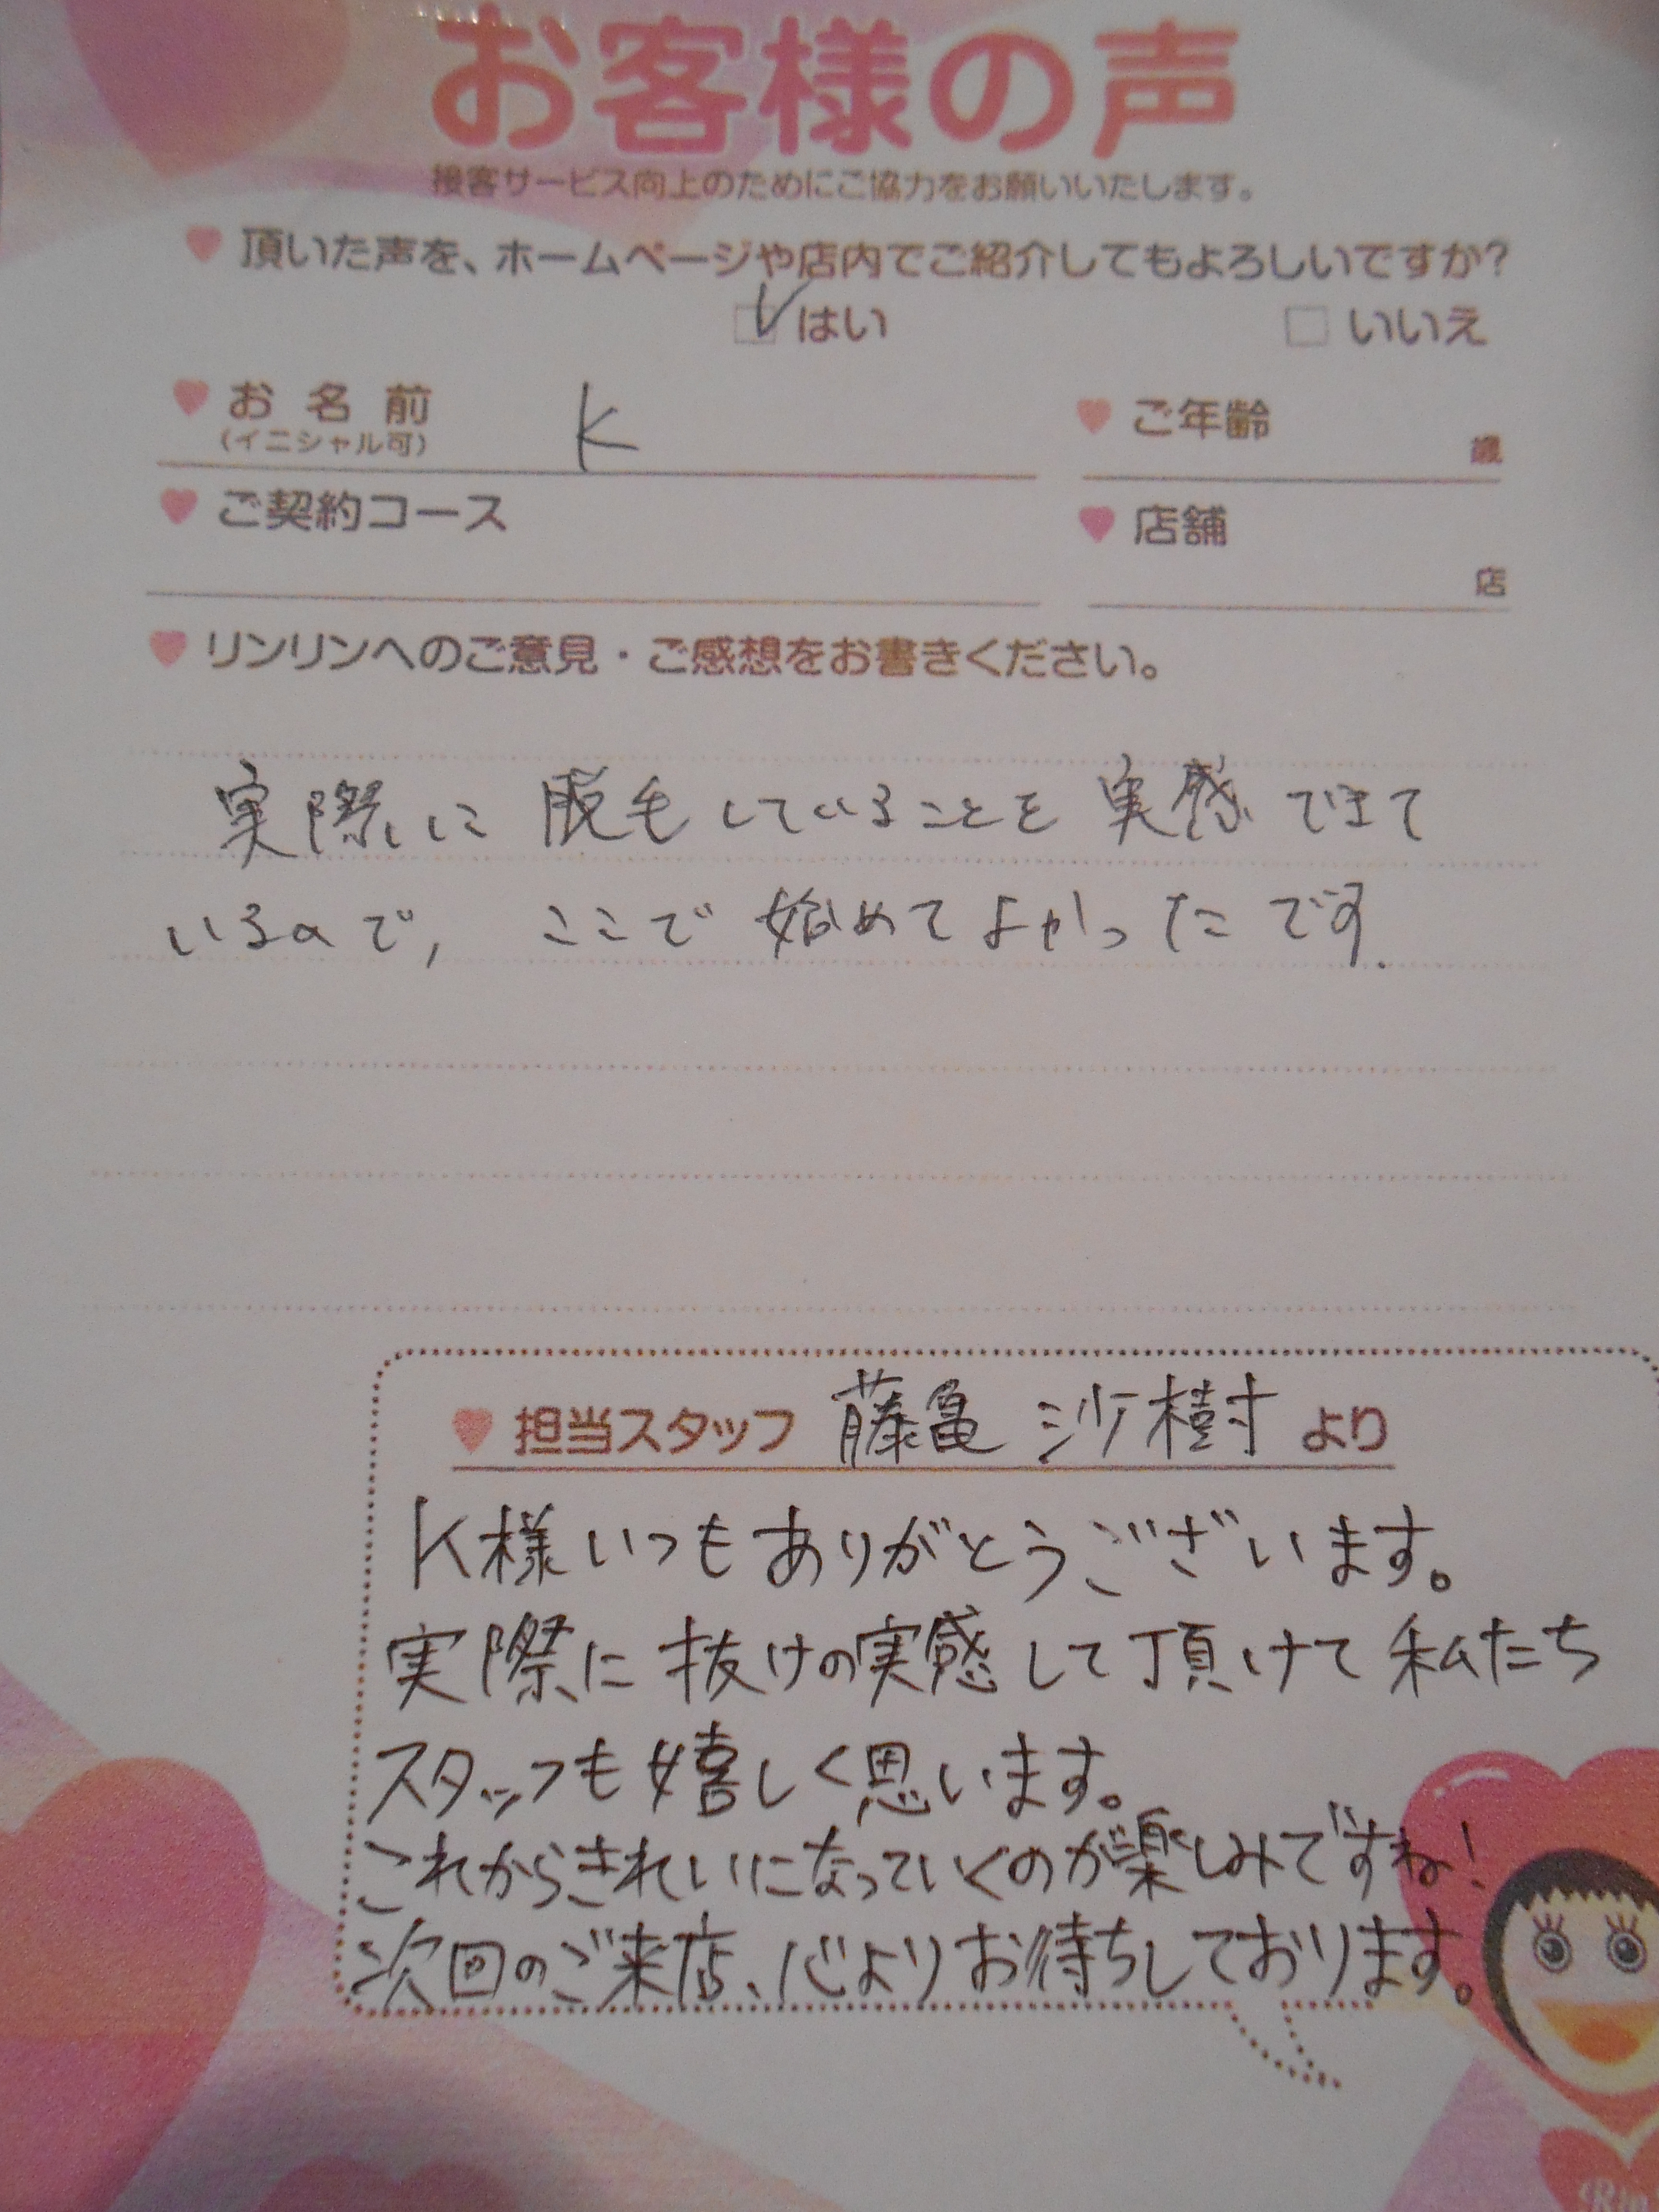 お客様の声
接客サービス向上のためにご協力をお願いいたします。
頂いた声を、ホームページや店内でご紹介してもよろしいですか?
はい いいえ
お名前 K ご年齢
(イニシャル可) 歳
ご契約コース 店舗
店
リンリンへのご意見・ご感想をお書きください。
実際に脱毛していることを実感できて
いるので, ここで始めてよかったです.
担当スタッフ 藤亀 沙樹 より
K様いつもありがとうございます。
実際に抜けの実感して頂けて私たち
スタッフも嬉しく思います。
これからきれいになっていくのが楽しみですね!
次回のご来店、心よりお待ちしております。